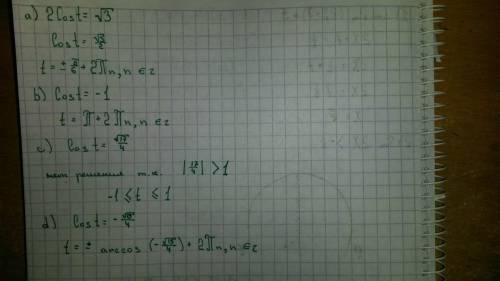 a) 2Cost = √3
Cost = √3/2
t = ± π/6 + 2πn, n ∈ z
b) Cost = -1
t = π + 2πn, n ∈ z
c) Cost = √17/4
нет решения т.к. |17/4| > 1
-1 ≤ t ≤ 1
d) Cost = -√15/4
t = ± arccos (-√15/4) + 2πn, n ∈ z